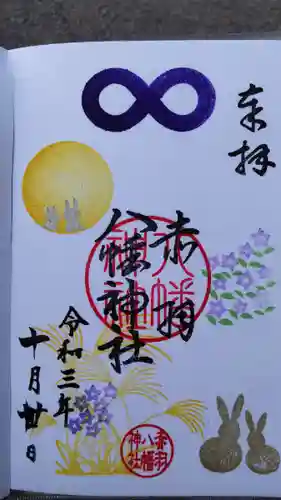 奉拝
赤羽
八幡神社
令和三年
十月廿日
八幡
神社
赤羽
八幡
神社